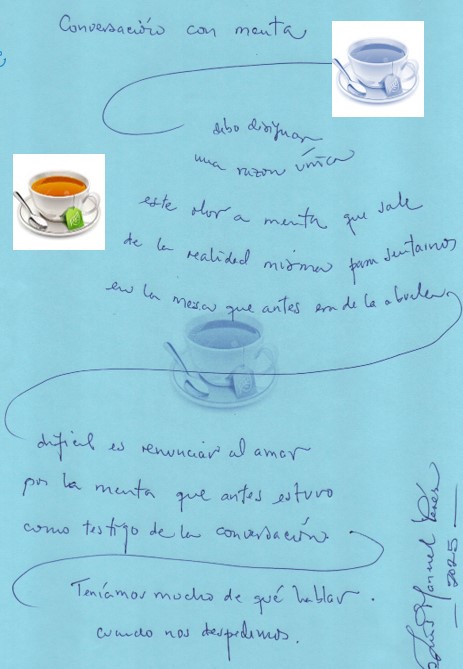 Conversación con menta
debo disipar
una razón única
este olor a menta que sale
de la realidad misma para sentarnos
en la mesa que antes era de la abuela,
difícil es renunciar al amor
por la menta que antes estuvo
como testigo de la conversación
Teníamos mucho de qué hablar.
cuando nos despedimos.
Manuel Pérez
2025